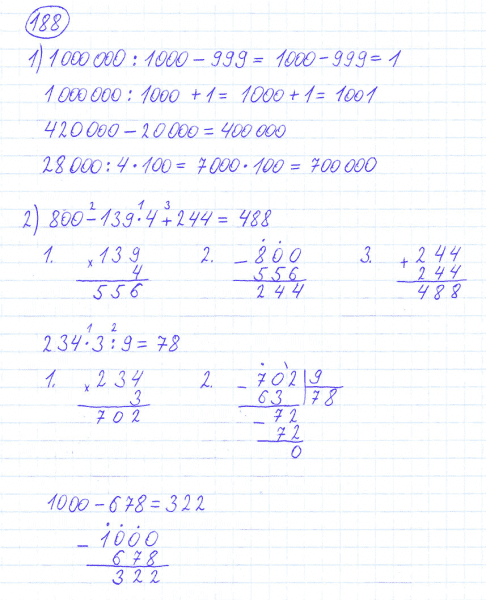 188
1) 1 000 000 : 1000 - 999 = 1000 - 999 = 1
1 000 000 : 1000 + 1 = 1000 + 1 = 1001
420 000 - 20 000 = 400 000
28 000 : 4 · 100 = 7000 · 100 = 700 000
2 1 3
2) 800 - 139 · 4 + 244 = 488
1. × 139 2. - 800 3. + 244
4 556 244
556 244 488
1 2
234 · 3 : 9 = 78
1. × 234 2. - 702 9
3 63 78
702 - 72
72
0
1000 - 678 = 322
- 1000
678
322